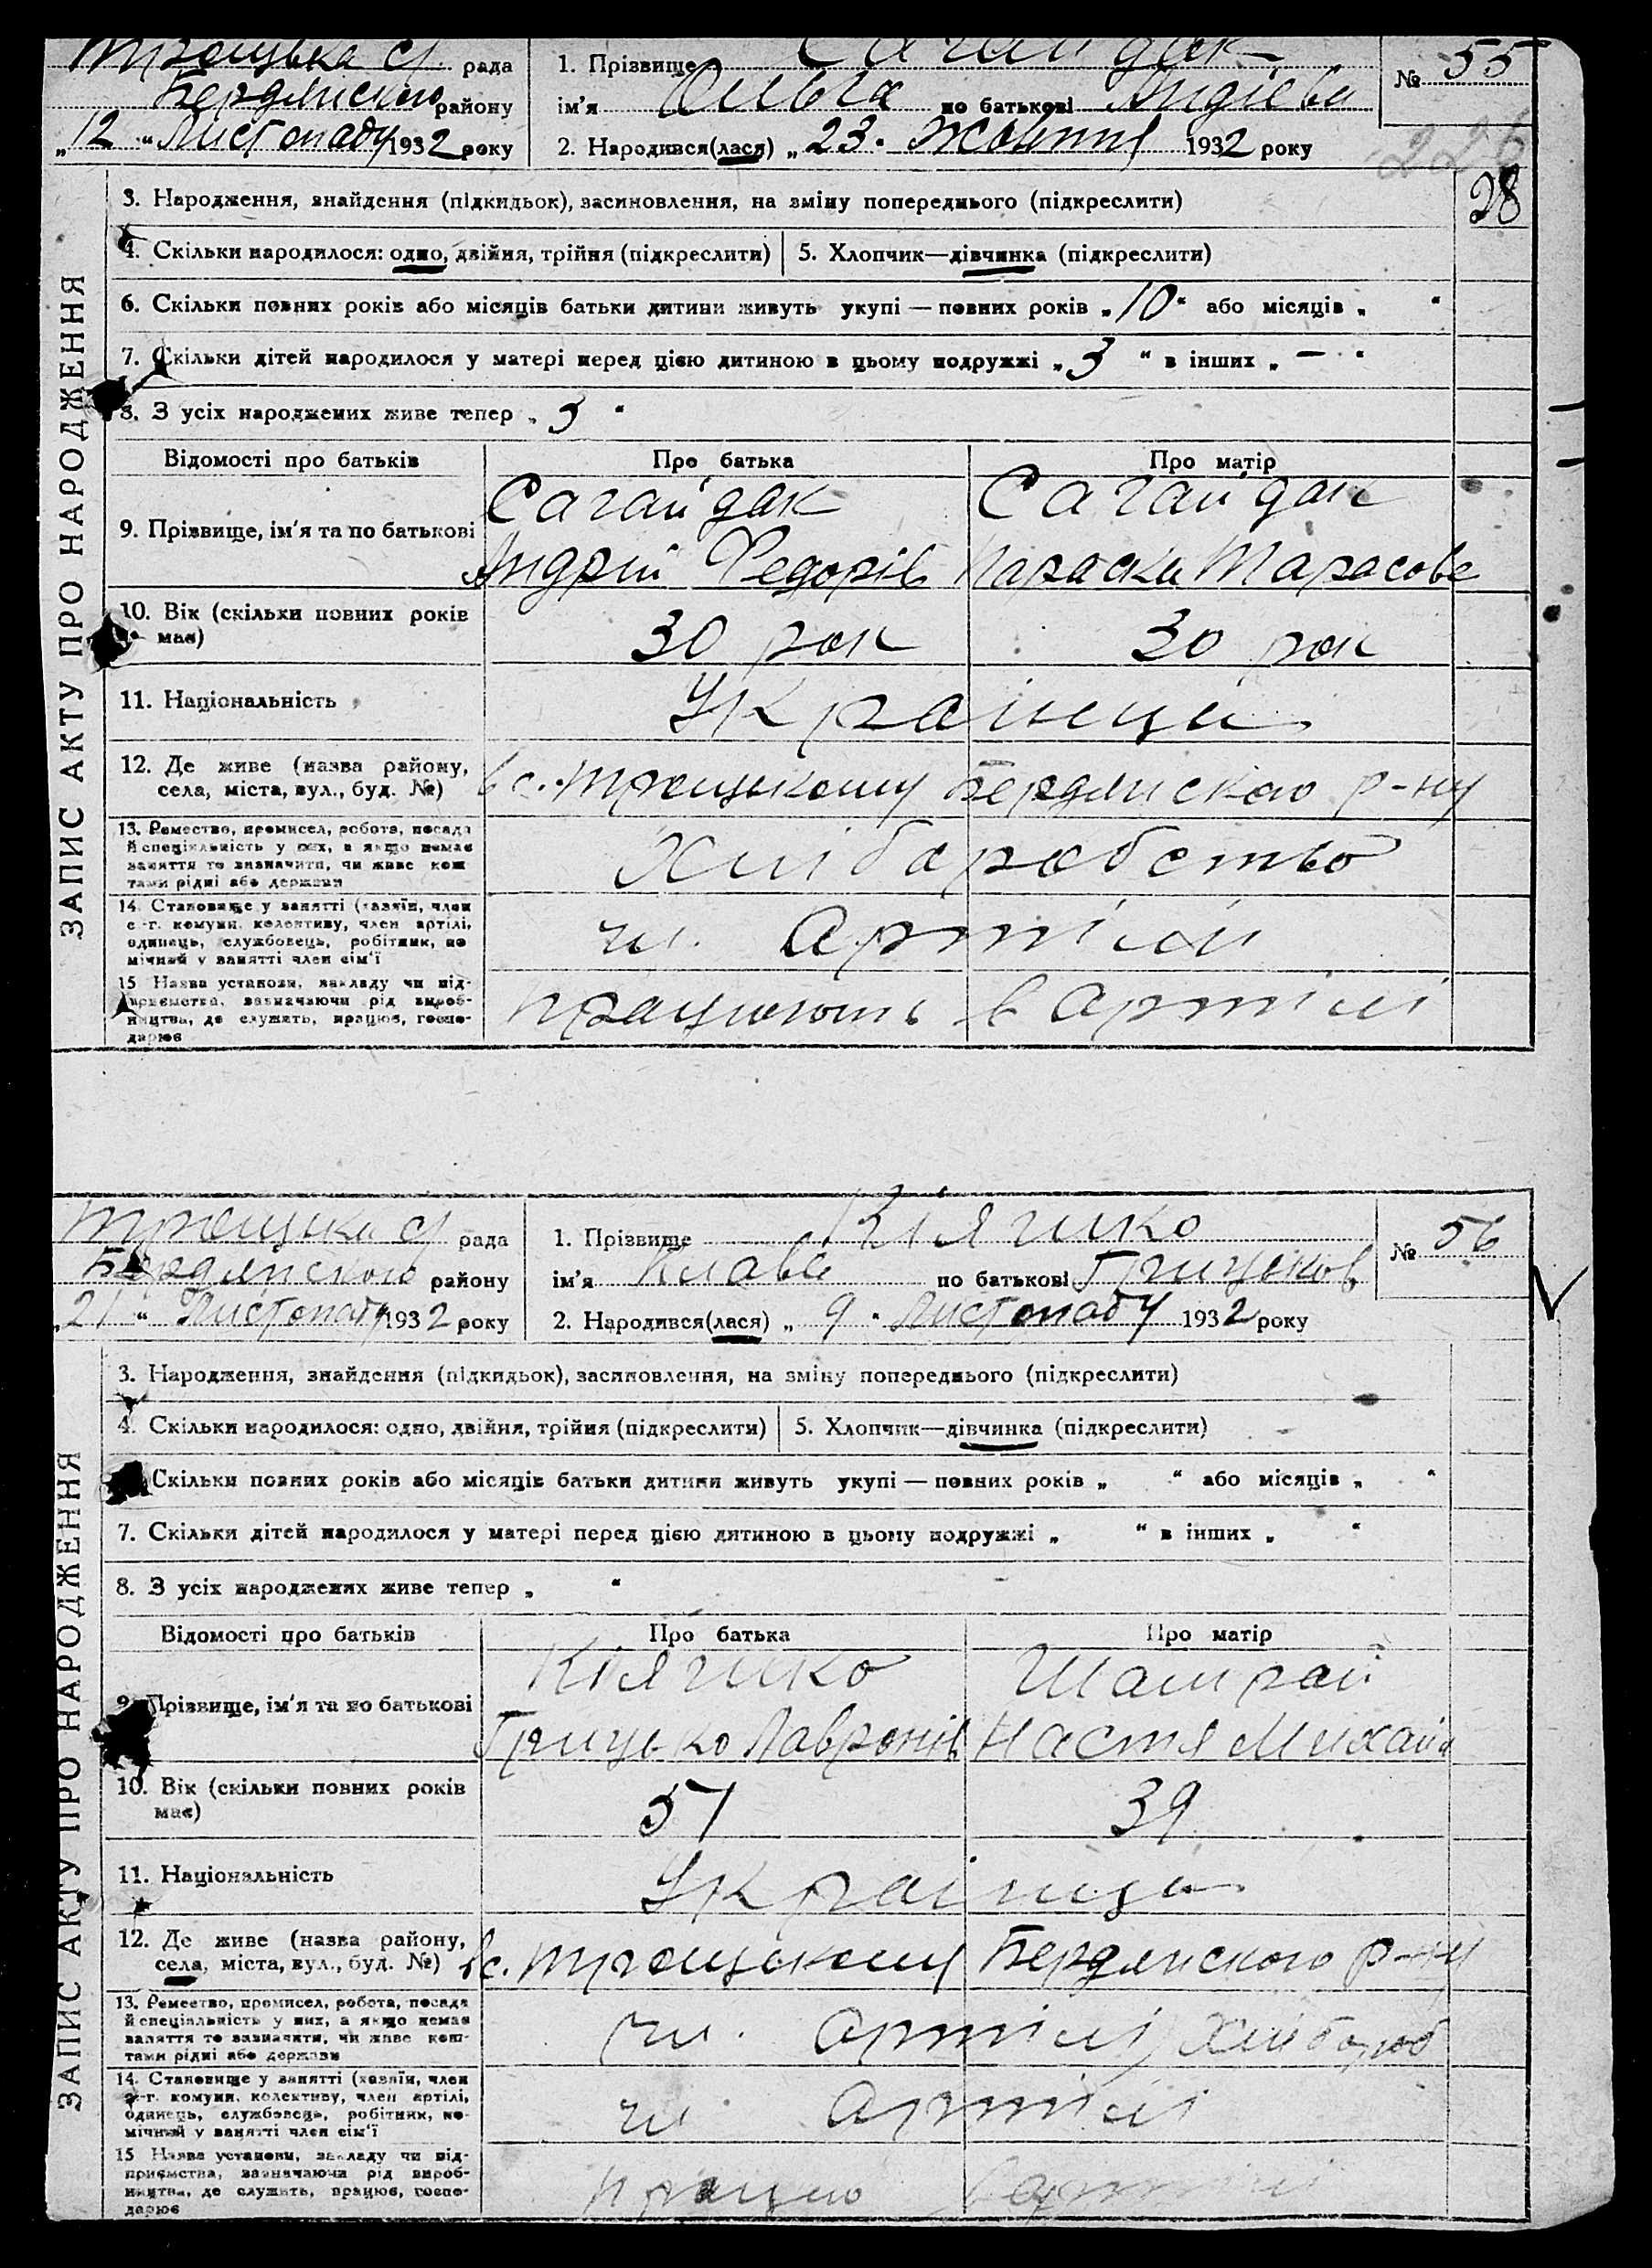 Троцька с/ рада
Бердянського району
„12" Листопаду 1932 року
1. Прізвище Сагайдак
ім'я Ольга по батькові Андієва
2. Народився(лася) „23" Жовтня 1932 року
№ 55
226
28
ЗАПИС АКТУ ПРО НАРОДЖЕННЯ
3. Народження, знайдення (підкидьок), засиновлення, на зміну попереднього (підкреслити)
4. Скільки народилося: одно, двійня, трійня (підкреслити) 5. Хлопчик—дівчинка (підкреслити)
6. Скільки повних років або місяців батьки дитини живуть укупі — повних років „10" або місяців „ "
7. Скільки дітей народилося у матері перед цією дитиною в цьому подружжі „3" в інших „—"
8. З усіх народжених живе тепер „3"
Відомості про батьків Про батька Про матір
9. Прізвище, ім'я та по батькові
Сагайдак Сагайдак
Андрій Федорів Параска Тарасова
10. Вік (скільки повних років має) 30 рок 30 рок
11. Національність Українци
12. Де живе (назва району,
села, міста, вул., буд. №) в с. Троцькому Бердянского р-ну
13. Ремество, промисел, робота, посада
й спеціяльність у них, а якщо немає
заняття то зазначити, чи живе кош
тами рідні або держави
Хліборобство
14. Становище у занятті (хазяїн, член
с.-г. комуни, колективу, член артілі,
одинець, службовець, робітник, по
мічний у занятті член сім'ї
чл. Артілі
15 Назва установи, закладу чи під-
приємства, зазначаючи рід вироб-
ництва, де служить, працює, госпо-
дарює
працюють в Артілі
Троцька с/ рада
Бердянського району
„21" Листопаду 1932 року
1. Прізвище Кляшко
ім'я Клава по батькові Грицьков
2. Народився(лася) „9" Листопаду 1932 року
№ 56
ЗАПИС АКТУ ПРО НАРОДЖЕННЯ
3. Народження, знайдення (підкидьок), засиновлення, на зміну попереднього (підкреслити)
4. Скільки народилося: одно, двійня, трійня (підкреслити) 5. Хлопчик—дівчинка (підкреслити)
Скільки повних років або місяців батьки дитини живуть укупі — повних років „ " або місяців „ "
7. Скільки дітей народилося у матері перед цією дитиною в цьому подружжі „ " в інших „ "
8. З усіх народжених живе тепер „ "
Відомості про батьків Про батька Про матір
9. Прізвище, ім'я та по батькові
Кляшко Шамрай
Грицько Лавронів Настя Михайл
10. Вік (скільки повних років
має)
57 39
11. Національність Українци
12. Де живе (назва району,
села, міста, вул., буд. №) в с. Троцькому Бердянского р-ну
13. Ремество, промисел, робота, посада
й спеціяльність у них, а якщо немає
заняття то зазначити, чи живе кош-
тами рідні або держави
чл. артілі Хлібороб
14. Становище у занятті (хазяїн, член
с.-г. комуни, колективу, член артілі,
одинець, службовець, робітник, по-
мічний у занятті член сім'ї
чл. Артілі
15 Назва установи, закладу чи під-
приємства, зазначаючи рід вироб-
ництва, де служить, працює, госпо-
дарює
працю в артілі